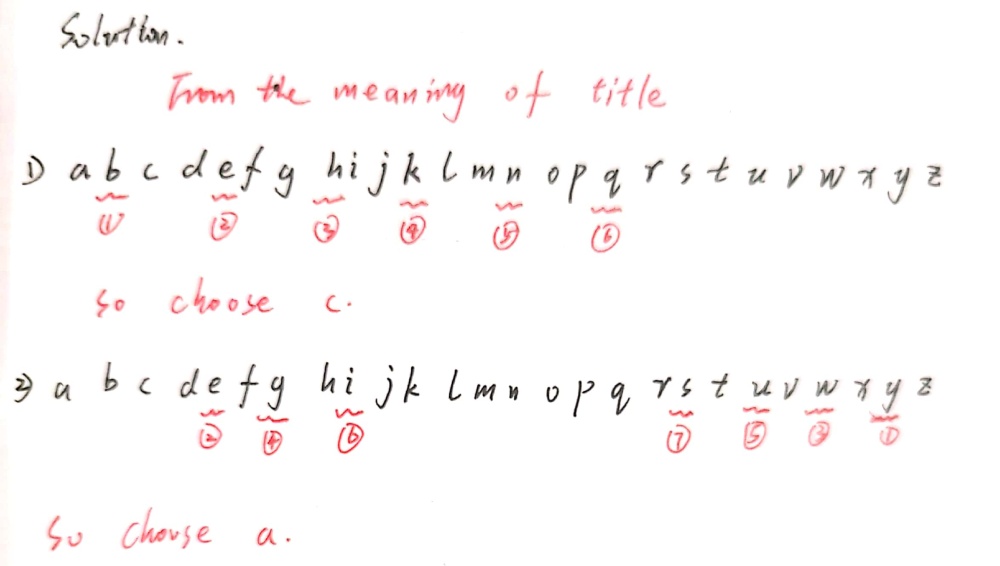 Solution.
From the meaning of title
1) a b c d e f g h i j k l m n o p q r s t u v w x y z
① ② ③ ④ ⑤ ⑥
so choose c.
2) a b c d e f g h i j k l m n o p q r s t u v w x y z
② ④ ⑥ ⑦ ⑤ ③ ①
So choose a.